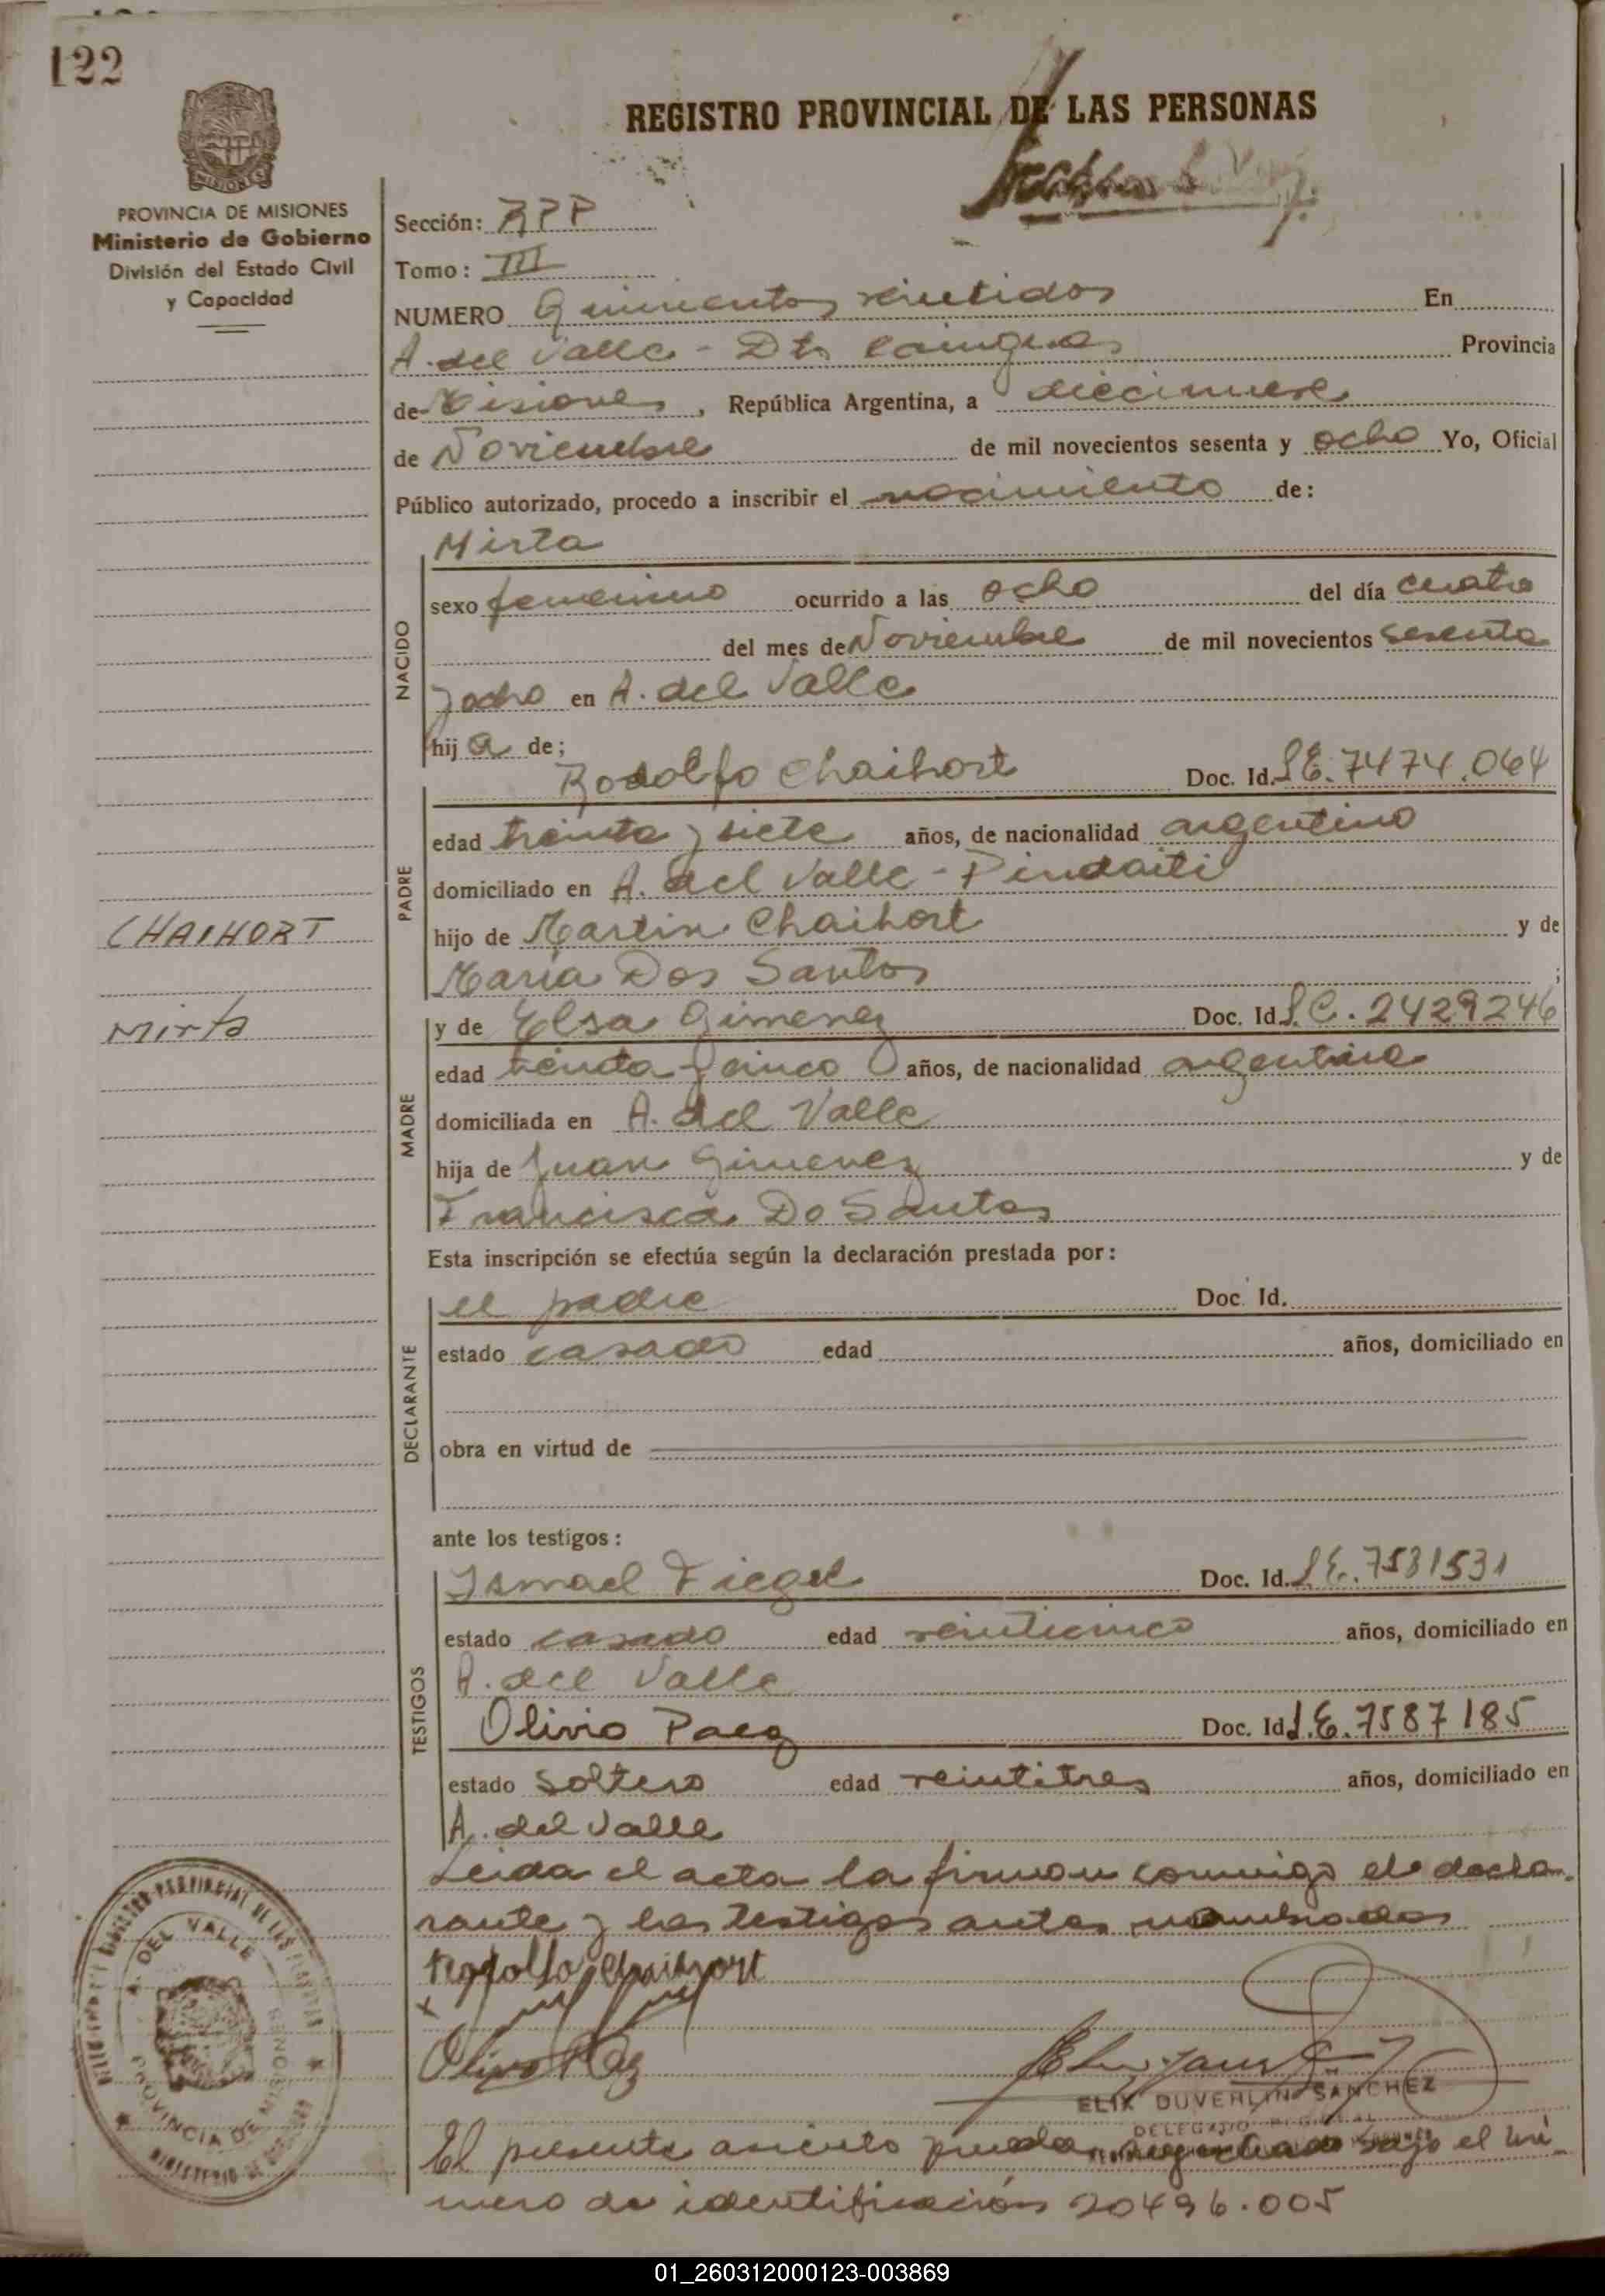 122
REGISTRO PROVINCIAL DE LAS PERSONAS
MISIONES
PROVINCIA DE MISIONES
Ministerio de Gobierno
División del Estado Civil
y Capacidad
Sección: RPP
Tomo: III
NUMERO Quinientos veintidos En
A. del Valle - Dto Cainguas Provincia
de Misiones, República Argentina, a diecinueve
de Noviembre de mil novecientos sesenta y ocho Yo, Oficial
Público autorizado, procedo a inscribir el nacimiento de:
NACIDO
Mirta
sexo femenino ocurrido a las ocho del día cuatro
del mes de Noviembre de mil novecientos sesenta
y ocho en A. del Valle
hija de;
PADRE
Rodolfo Chaihort Doc. Id. L.E. 7474.064
edad treinta y siete años, de nacionalidad argentino
domiciliado en A. del Valle - Pindaiti
hijo de Martin Chaihort y de
Maria Dos Santos ;
CHAIHORT
Mirta
MADRE
y de Elsa Gimenez Doc. Id L.C. 2429246
edad treinta y cinco años, de nacionalidad argentina
domiciliada en A. del Valle
hija de Juan Gimenez y de
Francisca Do Santos
Esta inscripción se efectúa según la declaración prestada por:
DECLARANTE
el padre Doc. Id.
estado casado edad años, domiciliado en
obra en virtud de
ante los testigos:
TESTIGOS
Ismael Fiegel Doc. Id. L.E. 7531531
estado casado edad veinticinco años, domiciliado en
A. del Valle
Olivio Paez Doc. Id L.E. 7587185
estado soltero edad veintitres años, domiciliado en
A. del Valle
Leida el acta la firman conmigo el decla-
rante y los testigos antes nombrados
Rodolfo Chaihort
Olivio Paez
ELIX DUVERLIN SANCHEZ
DELEGADO REGIONAL
REGISTRO PROVINCIAL DE LAS PERSONAS
A. DEL VALLE
PROVINCIA DE MISIONES
MINISTERIO DE GOBIERNO
El presente asiento queda registrado bajo el nú-
mero de identificación 20496.005
01_260312000123-003869